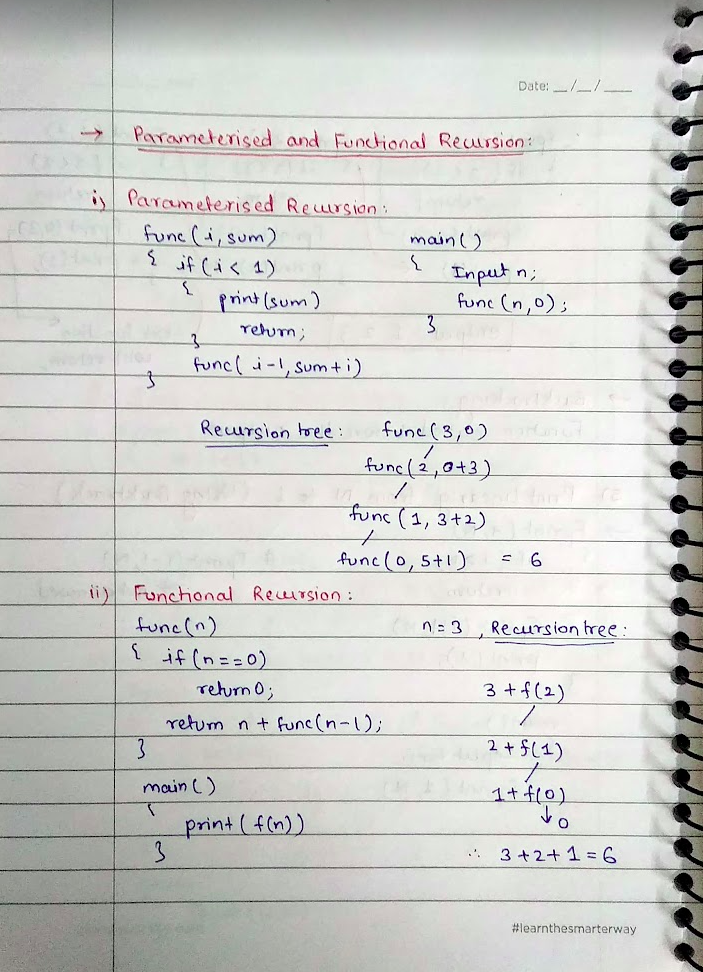 Date: __/__/____
→ Parameterised and Functional Recursion:
i) Parameterised Recursion:
func(i, sum)
{ if(i < 1)
{
print(sum)
return;
}
func( i-1, sum+i)
}
main()
{
Input n;
func(n,0);
}
Recursion tree: func(3,0)
func(2, 0+3)
func(1, 3+2)
func(0, 5+1) = 6
ii) Functional Recursion:
func(n)
{ if(n==0)
return 0;
return n + func(n-1);
}
main()
{
print(f(n))
}
n=3, Recursion tree:
3 + f(2)
2 + f(1)
1 + f(0)
↓ 0
∴ 3+2+1 = 6
#learnthesmarterway